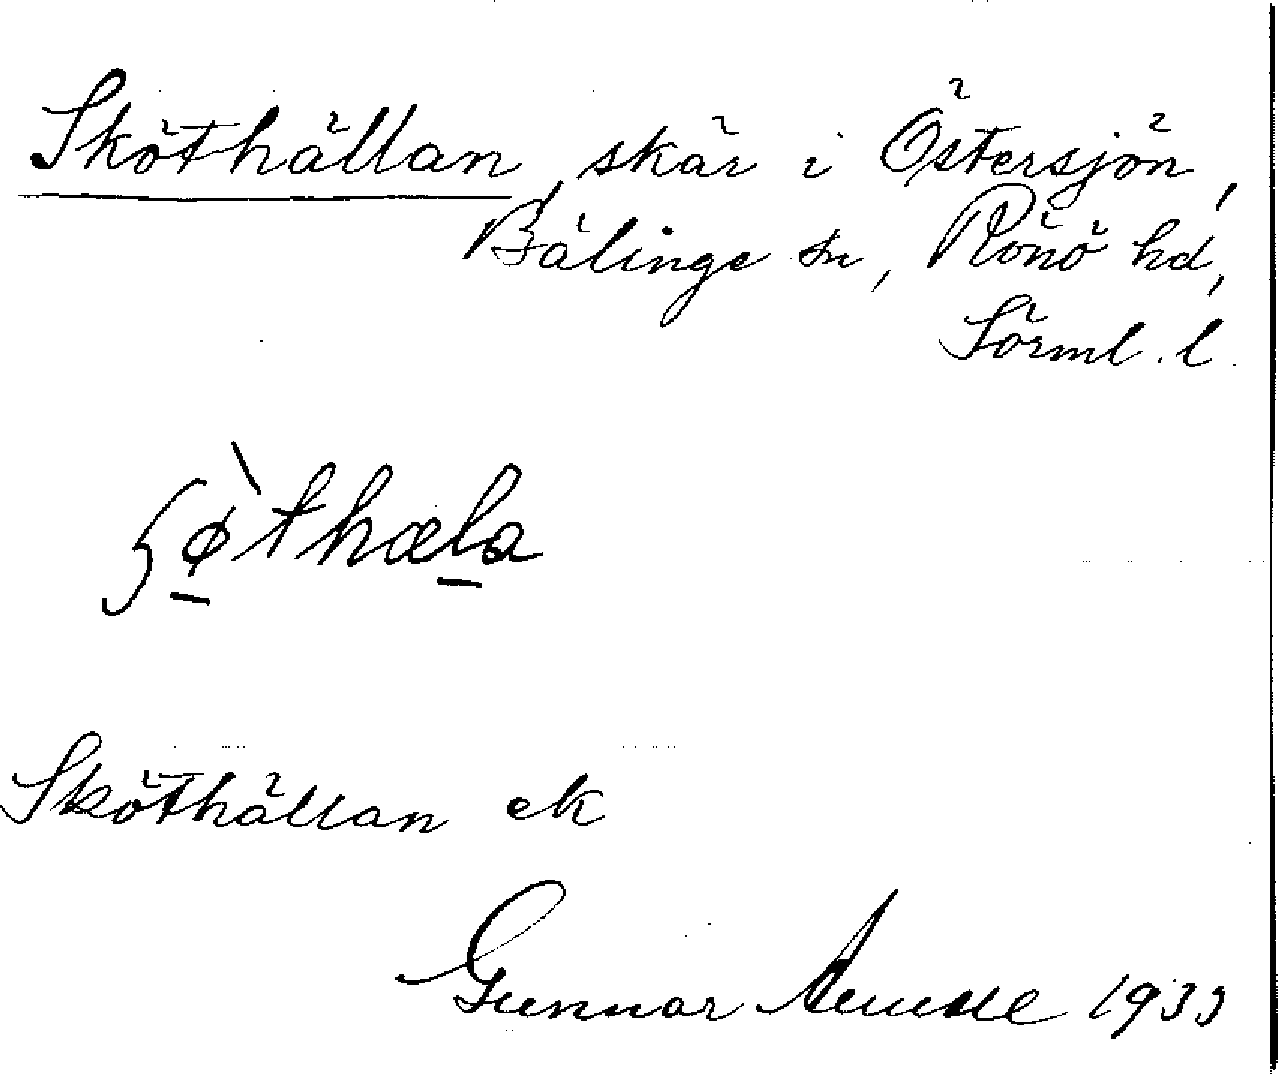 Sköthällan, skär i Östersjön,
Bälinge sn, Rönö hd,
Sörml. l.
Sköthällan ek
Gunnar 1933